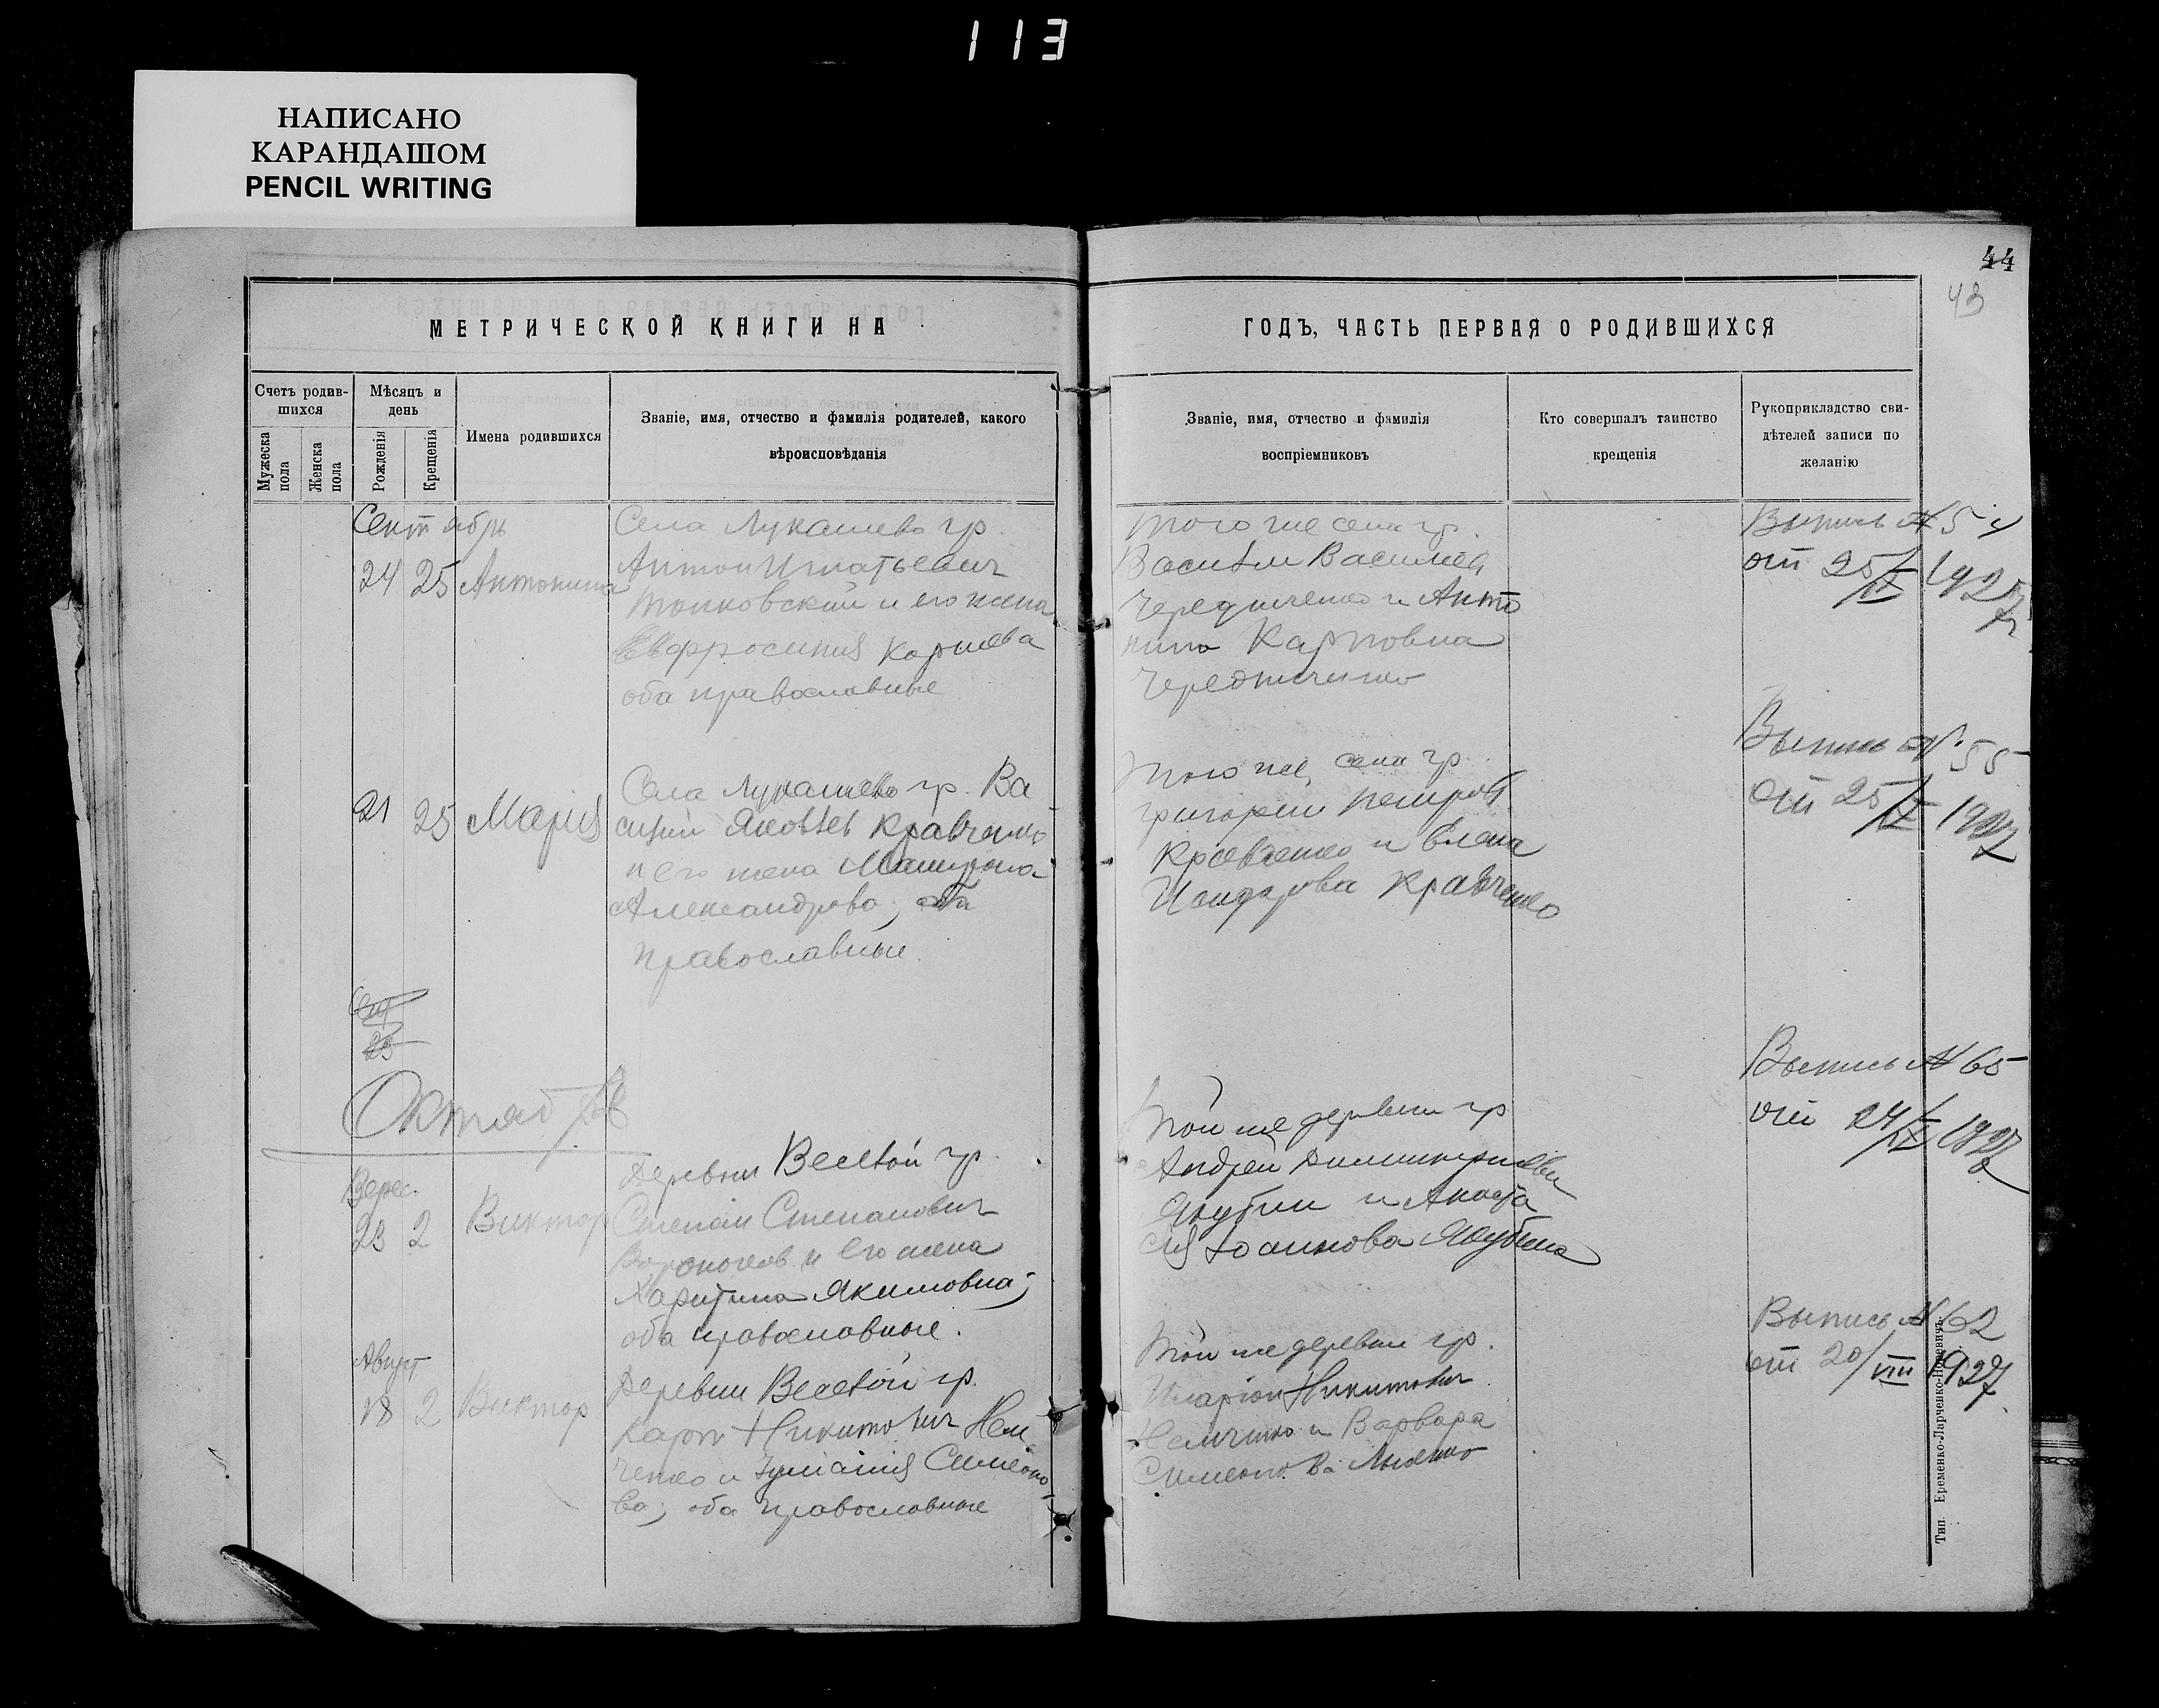 113
НАПИСАНО
КАРАНДАШОМ
PENCIL WRITING
44
43
МЕТРИЧЕСКОЙ КНИГИ НА
Счетъ родив-
шихся
Мѣсяцъ и
день
Мужеска
пола
Женска
пола
Рожденія
Крещенія
Имена родившихся
Званіе, имя, отчество и фамилія родителей, какого
вѣроисповѣданія
Сентябрь
24 25 Антонина
Села Лукашево гр.
Антон Игнатьевич
и его жена
Евфросиния
оба православные
21 25 Мария
Села Лукашево гр. Ва
силий Яковлев Кравченко
и его жена
Александрова, оба
православные.
Сент
23
Октябрь
Верес.
23 2 Виктор
Деревни Веселой гр.
Степан Степанович
и его жена
Харитина Якимовна;
оба православные.
Август
18 2 Виктор
Деревни Веселой гр.
Карп Никитович Нем
ченко и Иулианія Симеоно
ва; оба православные
ГОДЪ, ЧАСТЬ ПЕРВАЯ О РОДИВШИХСЯ
Званіе, имя, отчество и фамилія
воспріемниковъ
Кто совершалъ таинство
крещенія
Рукоприкладство сви-
дѣтелей записи по
желанію
Того же села гр.
Василий Василиев
Чередниченко и Анто
нина Карповна
Чередниченко
Выпись № 54
от 25/IX 1927
Того же села гр.
Григорий Петров
Кравченко и Елена
Кравченко
Выпись № 55
от 25/IX 1927
Той же деревни гр.
Андрей Димитриевич
Якубин и Анаста
сия Іоаннова Якубина
Выпись № 65
от 24/IX 1927
Той же деревни гр.
Иларіон Никитович
Немченко и Варвара
Симеонова
Выпись № 62
от 20/VIII 1927
Тип. Еременко-Ларченко-Ицевичъ.